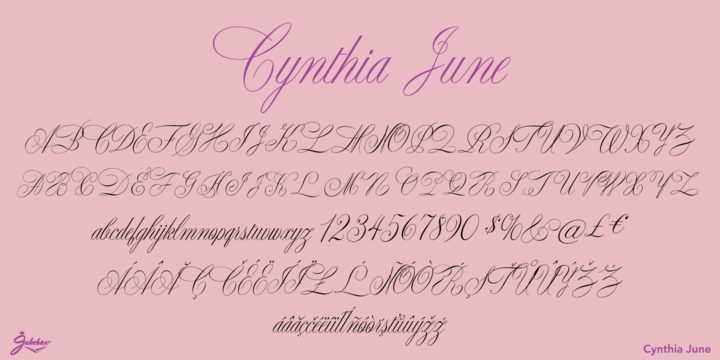 Cynthia June
ABCDEFGHIJKLMNOPQRSTUVWXYZ
ABCDEFGHIJKLMNOPQRSTUVWXYZ
abcdefghijklmnopqrstuvwxyz 1234567890 $%&@£€
ÁÂÄÇČÉËÍÏŁĹÑÓÒŔŞŤŮÛÝŽŻ
áâãçčéëüĺñóòŕşťůûýžż
Jukebox
Cynthia June